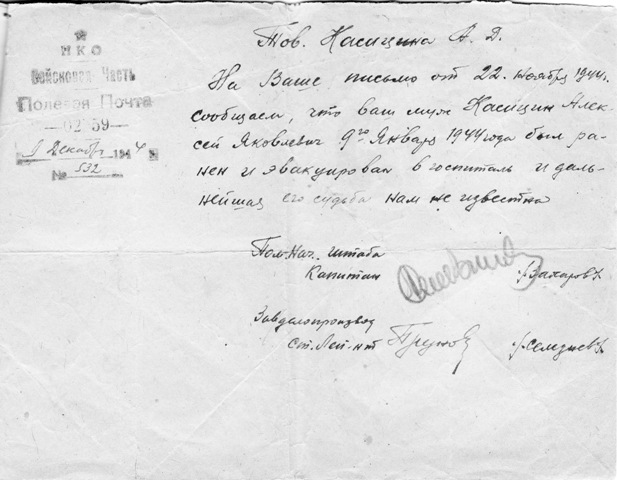 НКО
Войсковая Часть
Полевая Почта
—02*59—
9 Декабр 1944
№ 532
Тов. Касицина А. Д.
На Ваше письмо от 22. Ноября 1944г.
сообщаем, что ваш муж Касицин Алек-
сей Яковлевич 9го Января 1944 года был ра-
нен и эвакуирован в госпиталь и даль-
нейшая его судьба нам не известна
Пом. Нач. штаба
Капитан /Захаров/
Завделопроизвод
ст. Лей-нт